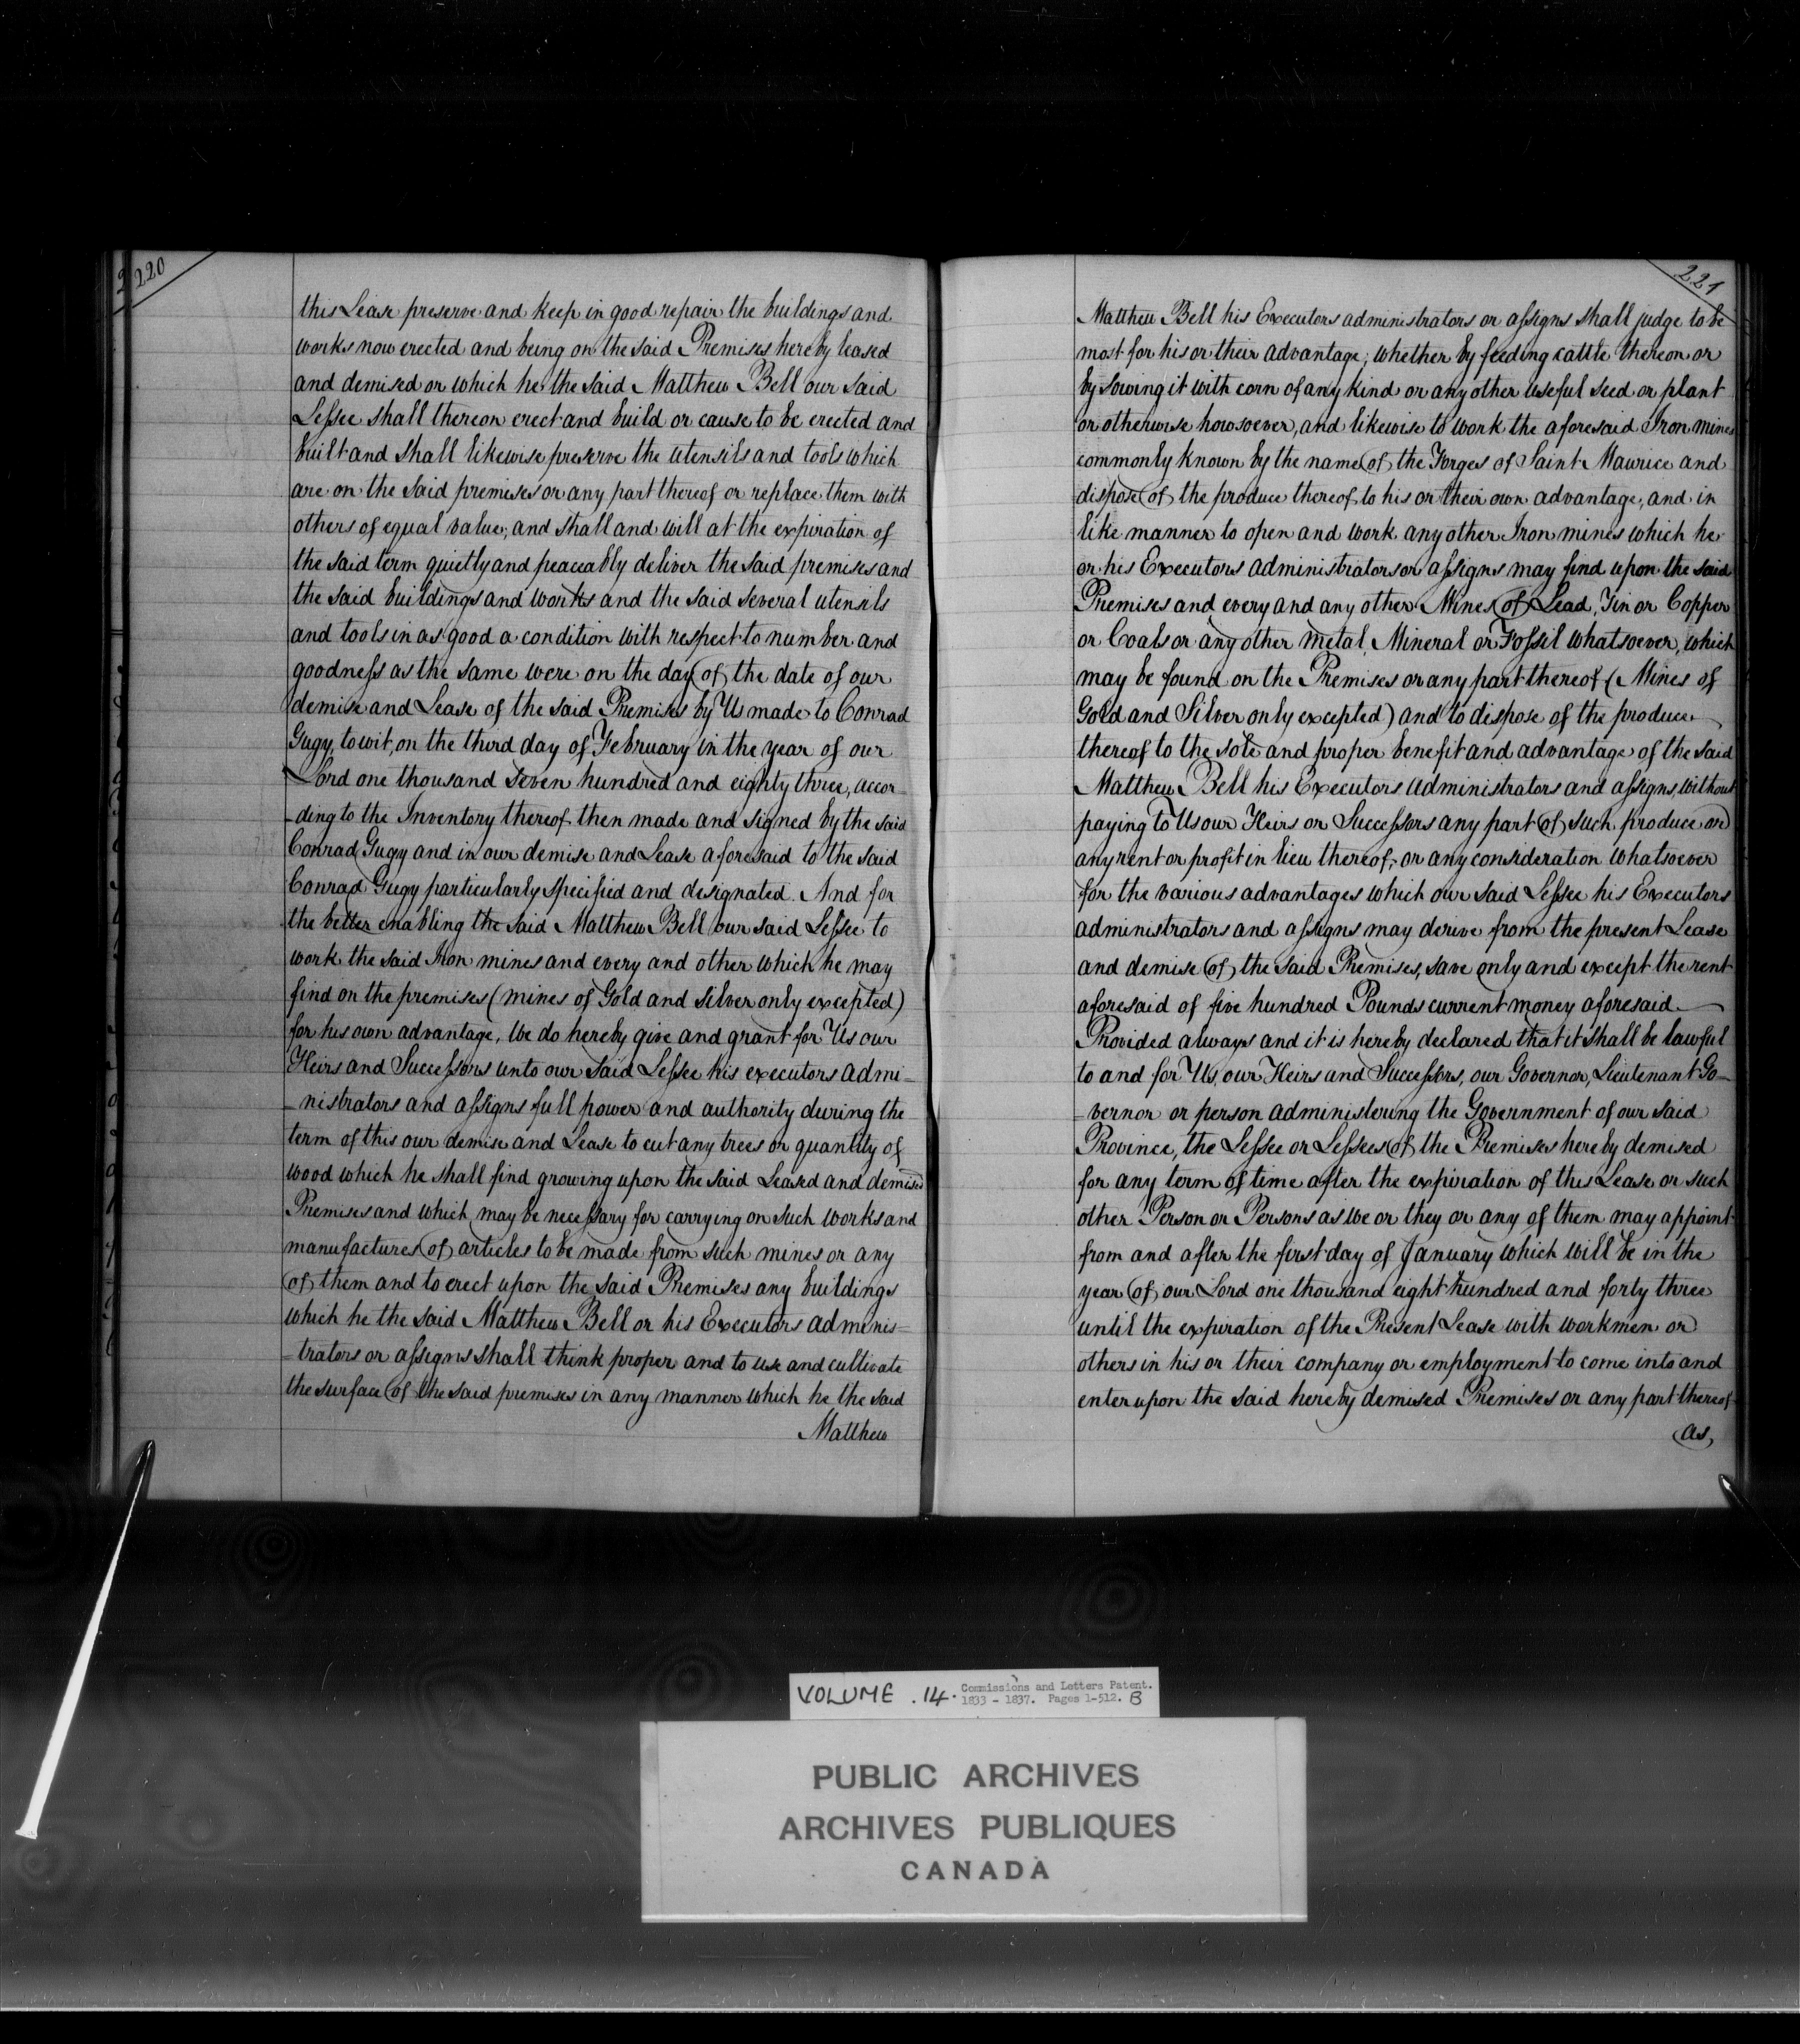 220
this Lease preserve and keep in good repair the buildings and
works now erected and being on the said Premises hereby leased
and demised or which he the said Matthew Bell our said
Lessee shall thereon erect and build or cause to be erected and
built and shall likewise preserve the utensils and tools which
are on the said premises or any part thereof or replace them with
others of equal value; and shall and will at the expiration of
the said term quietly and peaceably deliver the said premises and
the said buildings and works and the said several utensils
and tools in as good a condition with respect to number and
goodness as the same were on the day of the date of our
demise and Lease of the said Premises by Us made to Conrad
Gugy, to wit, on the third day of February in the year of our
Lord one thousand seven hundred and eighty three, accor-
-ding to the Inventory thereof then made and signed by the said
Conrad Gugy and in our demise and Lease aforesaid to the said
Conrad Gugy particularly specified and designated. And for
the better enabling the said Matthew Bell our said Lessee to
work the said Iron mines and every and other which he may
find on the premises (mines of Gold and Silver only excepted)
for his own advantage, We do hereby give and grant for Us our
Heirs and Successors unto our said Lessee his executors admi-
-nistrators and assigns full power and authority during the
term of this our demise and Lease to cut any trees or quantity of
wood which he shall find growing upon the said Leased and demised
Premises and which may be necessary for carrying on such works and
manufactures of articles to be made from such mines or any
of them and to erect upon the said Premises any buildings
which he the said Matthew Bell or his Executors adminis-
-trators or assigns shall think proper and to use and cultivate
the surface of the said premises in any manner which he the said
Matthew
221
Matthew Bell his Executors administrators or assigns shall judge to be
most for his or their advantage; whether by feeding cattle thereon or
by sowing it with corn of any kind or any other useful seed or plant
or otherwise howsoever, and likewise to work the aforesaid Iron mines
commonly known by the name of the Forges of Saint Maurice and
dispose of the produce thereof to his or their own advantage, and in
like manner to open and work any other Iron mines which he
or his Executors administrators or assigns may find upon the said
Premises and every and any other Mines of Lead, Tin or Copper
or Coals or any other metal, Mineral or Fossil whatsoever, which
may be found on the Premises or any part thereof (Mines of
Gold and Silver only excepted) and to dispose of the produce
thereof to the sole and proper benefit and advantage of the said
Matthew Bell his Executors administrators and assigns, without
paying to Us our Heirs or Successors any part of such produce or
any rent or profit in lieu thereof, or any consideration whatsoever
for the various advantages which our said Lessee his Executors
administrators and assigns may derive from the present Lease
and demise of the said Premises, save only and except the rent
aforesaid of five hundred Pounds current money aforesaid
Provided always and it is hereby declared that it shall be lawful
to and for Us, our Heirs and Successors, our Governor, Lieutenant Go-
-vernor or person administering the Government of our said
Province, the Lessee or Lessees of the Premises hereby demised
for any term of time after the expiration of this Lease or such
other Person or Persons as we or they or any of them may appoint
from and after the first day of January which will be in the
year of our Lord one thousand eight hundred and forty three
until the expiration of the Present Lease with workmen or
others in his or their company or employment to come into and
enter upon the said hereby demised Premises or any part thereof
as
VOLUME . 14. Commissions and Letters Patent.
1833 - 1837. Pages 1-512. B
PUBLIC ARCHIVES
ARCHIVES PUBLIQUES
CANADA